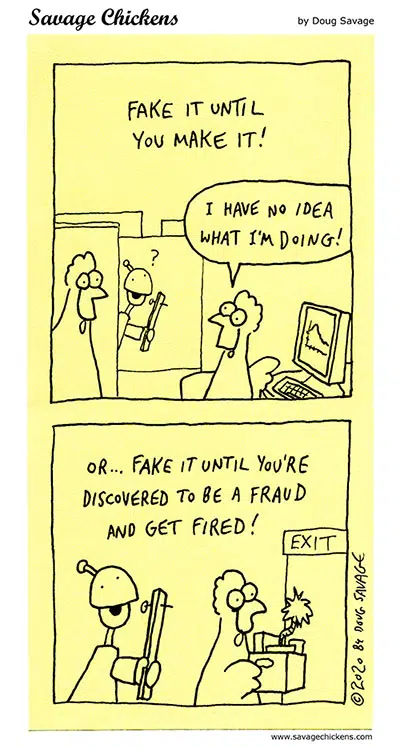 Savage Chickens
by Doug Savage
FAKE IT UNTIL
YOU MAKE IT!
I HAVE NO IDEA
WHAT I'M DOING!
?
OR... FAKE IT UNTIL YOU'RE
DISCOVERED TO BE A FRAUD
AND GET FIRED!
EXIT
© 2020 BY DOUG SAVAGE
www.savagechickens.com